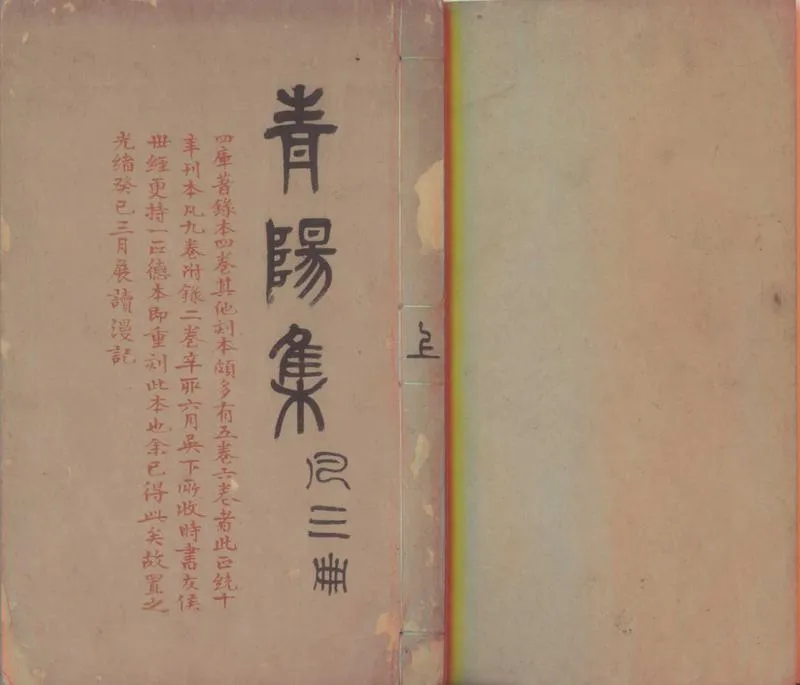 上
青陽集
凡三冊
四庫著錄本四卷其他刻本頗多有五卷六卷者此正統十
年刊本凡九卷附錄二卷辛卯六月吳下所收時書友侯
世經更持一正德本即重刻此本也余已得此矣故置之
光緒癸巳三月展讀漫記